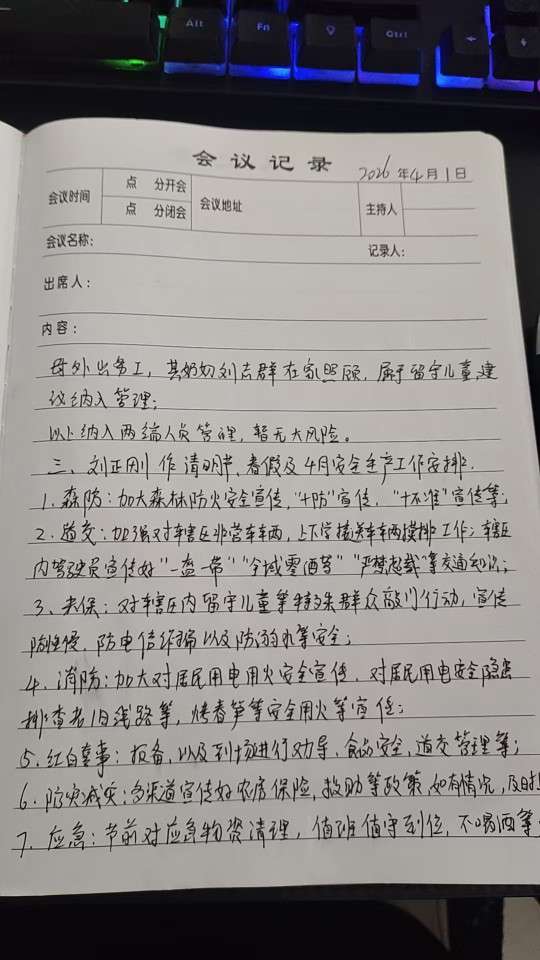 Alt
Fn
Ctrl
会议记录
2026年4月1日
会议时间
点 分开会
点 分闭会
会议地址
主持人
会议名称:
记录人:
出席人:
内容:
母外出务工,其奶奶刘志群在家照顾,属于留守儿童,建
议纳入管理;
以上纳入两端人员管理,暂无大风险。
三、刘正刚作清明节、春假及4月安全生产工作安排.
1.森防:加大森林防火安全宣传,"十防"宣传,"十不准"宣传等;
2.道交:加强对车辖区非营车车辆,上下学接送车车辆摸排工作;辖区
内驾驶员宣传好"一盔一带""全域零酒驾""严禁超载"等交通知识;
3.未保:对车辖区内留守儿童等特殊群众敲门行动,宣传
防性侵、防电信诈骗以及防溺水等安全;
4.消防:加大对居民用电用火安全宣传,对居民用电安全隐患
排查老旧线路等,烤春笋等安全用火等宣传;
5.红白喜事:报备,以及到场进行劝导,食品安全,道交管理等;
6.防灾减灾:多渠道宣传好农房保险,救助等政策,如有情况,及时
7.应急:节前对应急物资清理,值班值守到位,不喝酒等